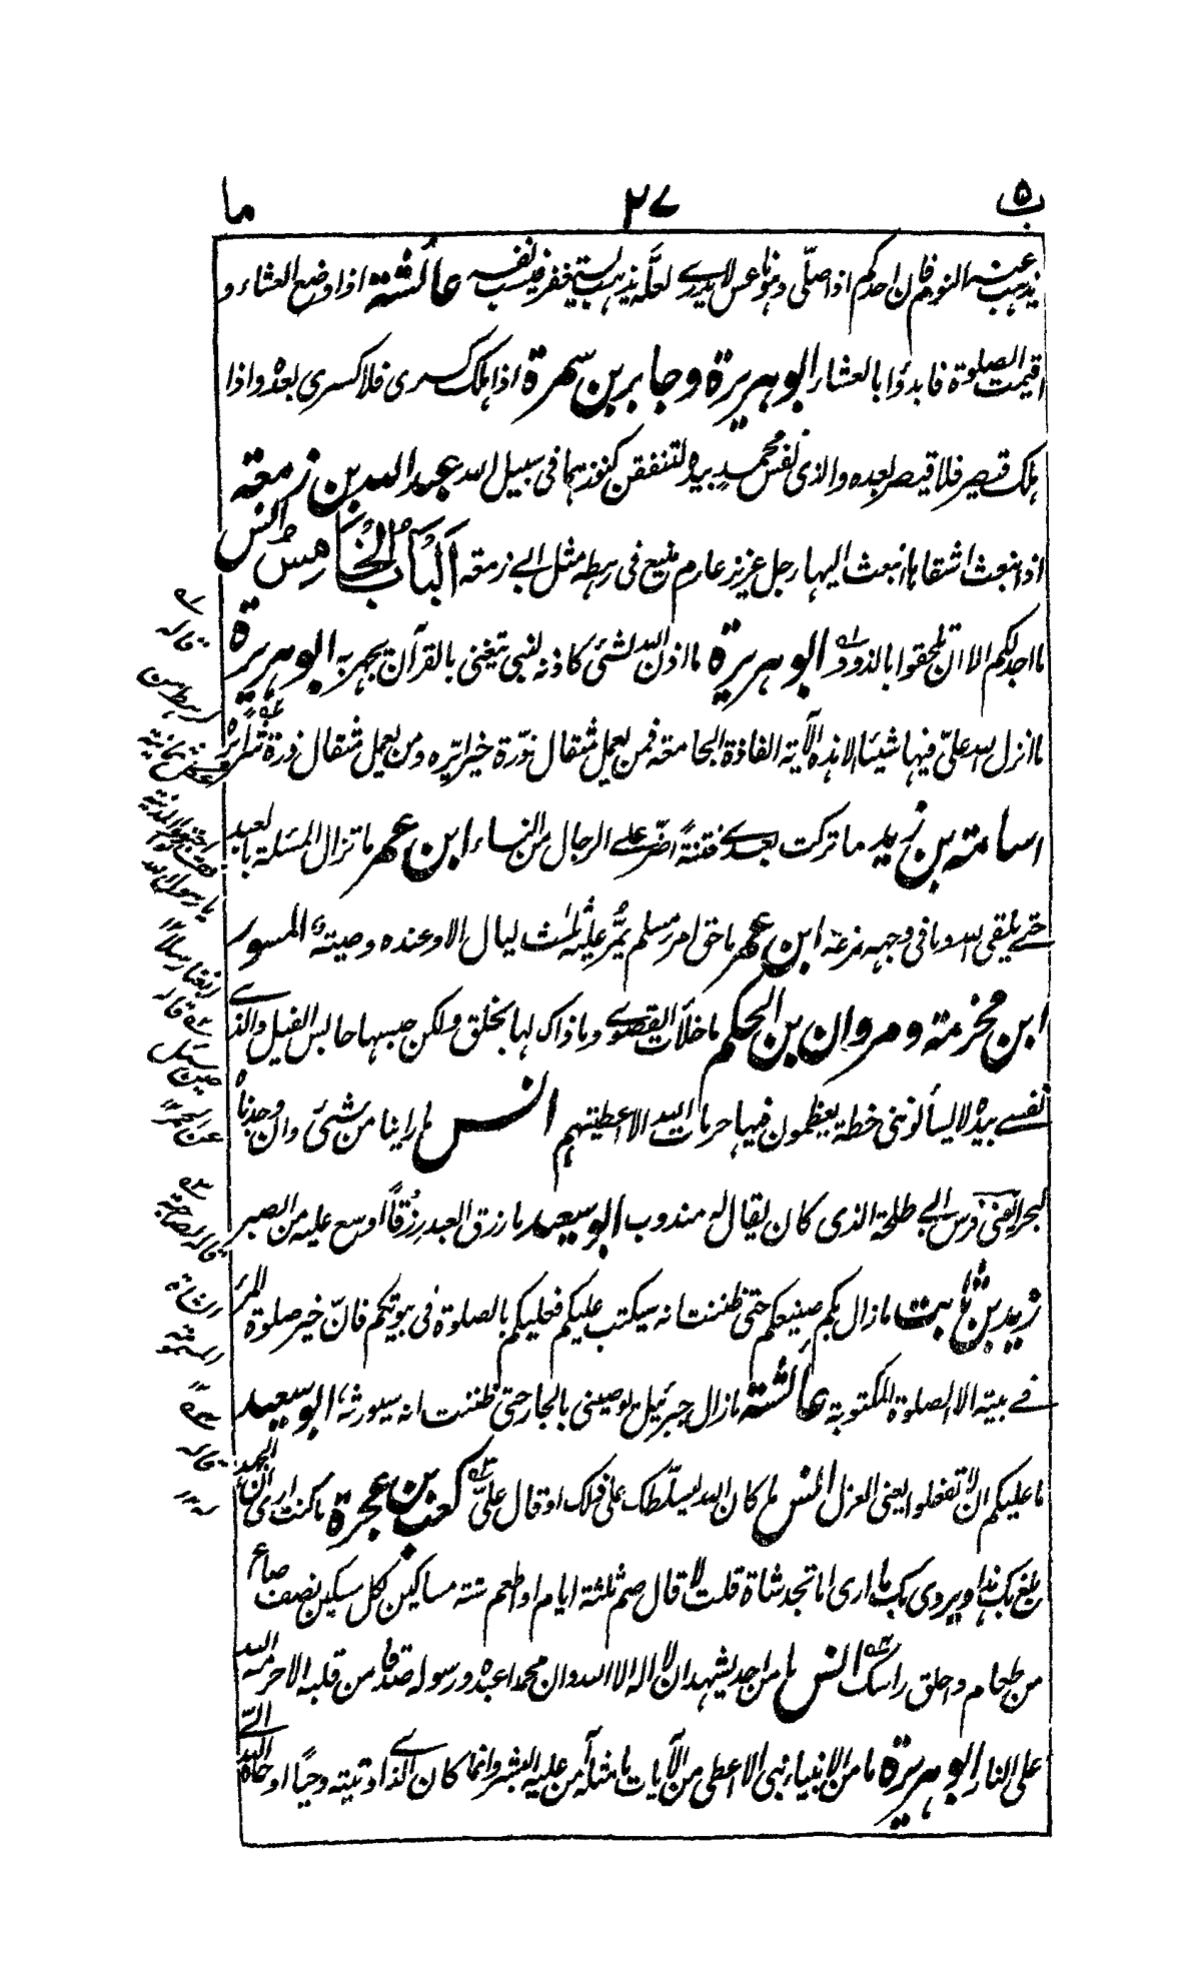 ب ٥
٢٧
ما
يذهب عنه النوم فان احدكم اذا صلّى وهو ناعس لا يدرى لعلّه يذهب يستغفر فيسب نفسه عائشة اذا وضع العشاء و
اقيمت الصلوة فابدؤا بالعشاء ابو هريرة وجابر بن سمرة اذا هلك كسرى فلا كسرى بعده واذا
هلك قيصر فلا قيصر بعده والذى نفس محمد بيده لتنفقن كنوزهما فى سبيل الله عبد الله بن زمعة
اذ انبعث اشقاها انبعث اليها رجل عزيز عارم منيع فى رهطه مثل ابى زمعة الباب الخامس انس
ما اجد لكم الا ان تلحقوا بالذود ابو هريرة ما اذن الله لشئ كاذنه لنبى يتغنى بالقرآن يجهر به ابو هريرة
ما انزل الله علىّ فيها شيئا الا هذه الآية الفاذة الجامعة فمن يعمل مثقال ذرّة خيرا يره ومن يعمل مثقال ذرة شرا يره
اسامة بن زيد ما تركت بعدى فتنةً اضرّ على الرجال من النساء ابن عمر ما تزال المسئلة بالعبد
حتى يلقى الله وما فى وجهه مزعة ابن عمر ما حق امرء مسلم تمرّ عليه ثلث ليال الا وعنده وصيته المسور
ابن مخرمة ومروان بن الحكم ما خلأت القصوى وما ذاك لها بخلق ولكن حبسها حابس الفيل والذى
نفسى بيده لا يسألوننى خطة يعظمون فيها حرمات الله الا اعطيتهم انس ما راينا من شئ وان وجدناه
لبحرا يعنى فرس ابى طلحة الذى كان يقال له مندوب ابو سعيد ما رزق العبد رزقًا اوسع عليه من الصبر
زيد بن ثابت ما زال بكم صنيعكم حتى ظننت انه سيكتب عليكم فعليكم بالصلوة فى بيوتكم فانّ خير صلوة المرء
فى بيته الا الصلوة المكتوبة عائشة ما زال جبرئيل يوصينى بالجار حتى ظننت انه سيورثه ابو سعيد
ما عليكم ان لا تفعلوا يعنى العزل انس ما كان الله ليسلّطك على ذلك او قال علىّ كعب بن عجرة ما كنت ارى ان الجهد
بلغ بك هذا ويروى بك ما ارى اما تجد شاة قلت لا قال صم ثلثة ايام او اطعم ستة مساكين لكل مسكين نصف صاع
من طعام واحلق راسك انس ما من احد يشهد ان لا اله الا الله وان محمدا عبده ورسوله صدقا من قلبه الا حرمه الله
على النار ابو هريرة ما من الانبياء نبى الا اعطى من الآيات ما مثله آمن عليه البشر وانما كان الذى اوتيته وحيًا اوحاه الله الىّ
قاله
لرهط من
يا رسول الله
قاله
حين سئل
عن الحمر
قاله
الشاة
قاله